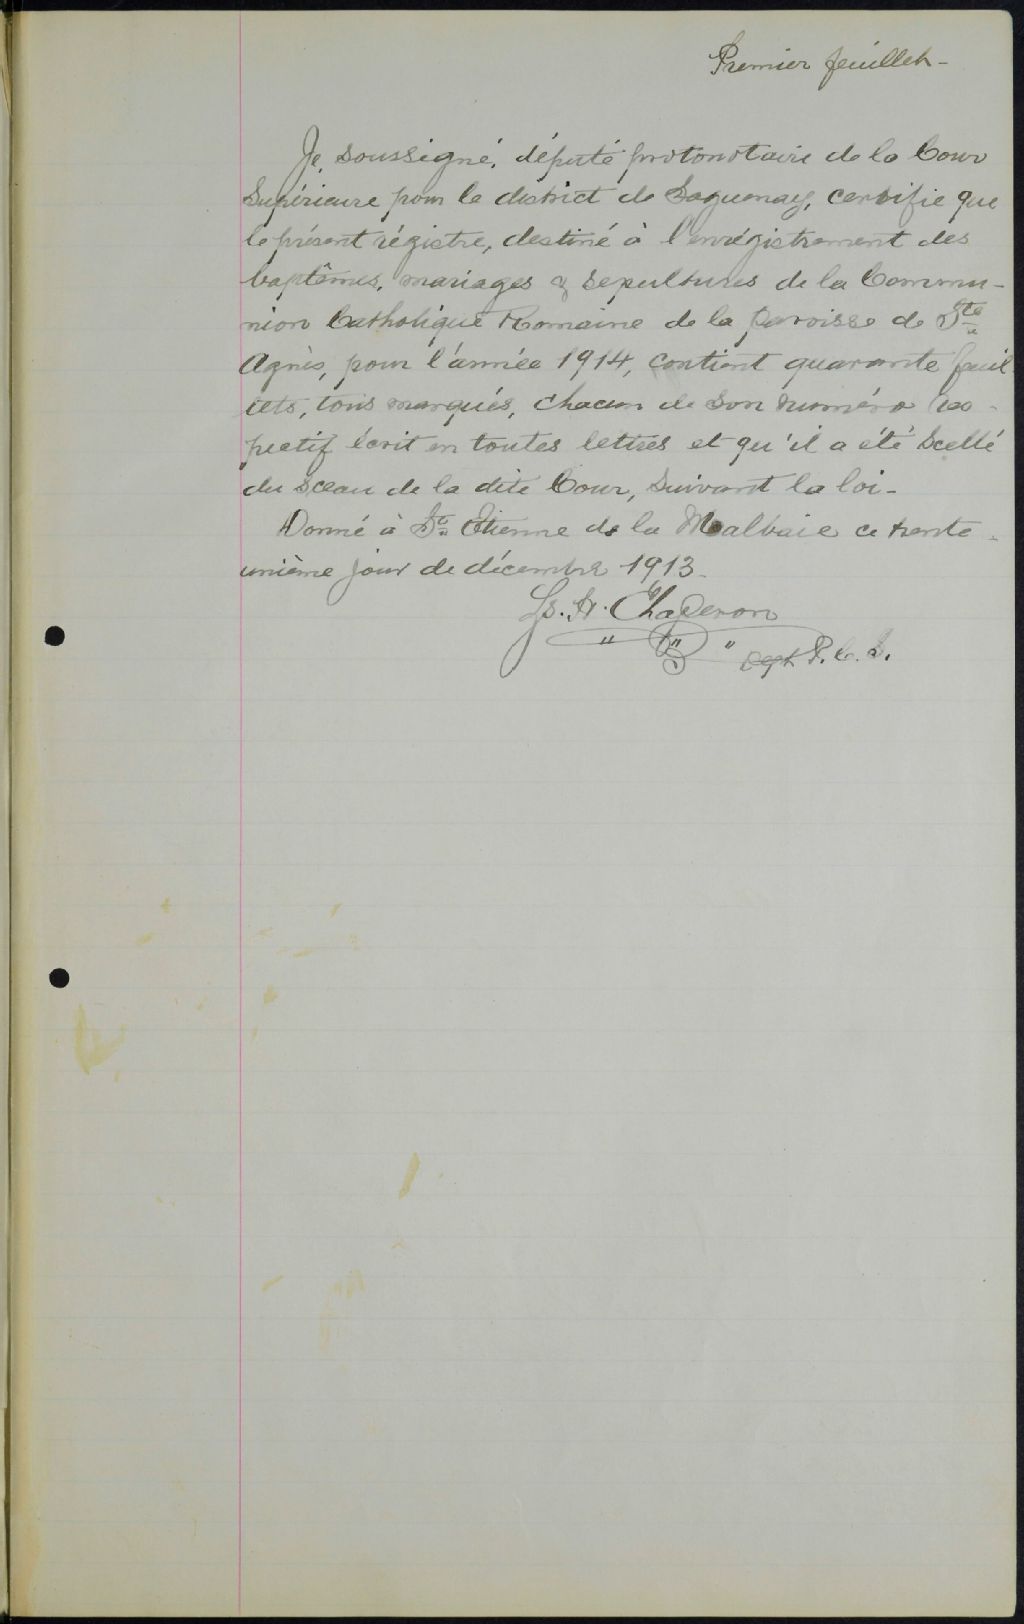 Premier feuillet -
Je, soussigné, député protonotaire de la Cour
Supérieure pour le district de Saguenay, certifie que
le présent régistre, destiné à l'enrégistrement des
baptêmes, mariages & sépultures de la Commu-
nion Catholique Romaine de la paroisse de Ste
Agnès, pour l'année 1914, contient quarante feuil
lets, tous marqués, chacun de son numéro res-
pectif écrit en toutes lettres et qu'il a été scellé
du sceau de la dite Cour, suivant la loi -
Donné à St Etienne de la Malbaie ce trente-
unième jour de décembre 1913.
Ls. H. Chaperon
Dept P. C. S.